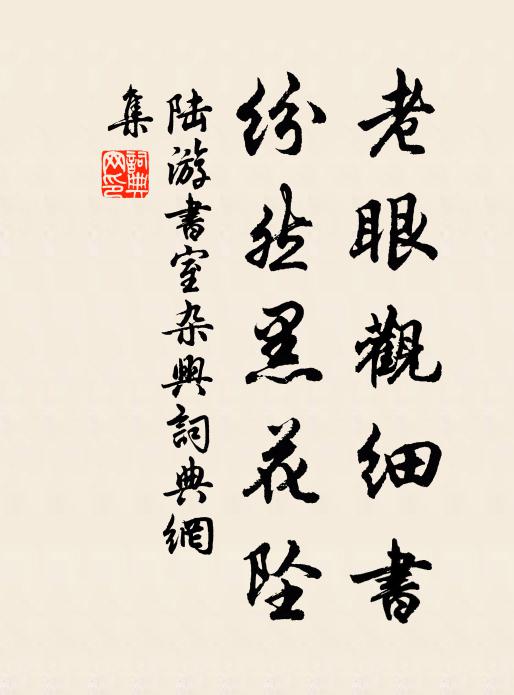 老眼觀細書
紛然黑花墜
陆游書室杂興詞典網
集
詞典
网印